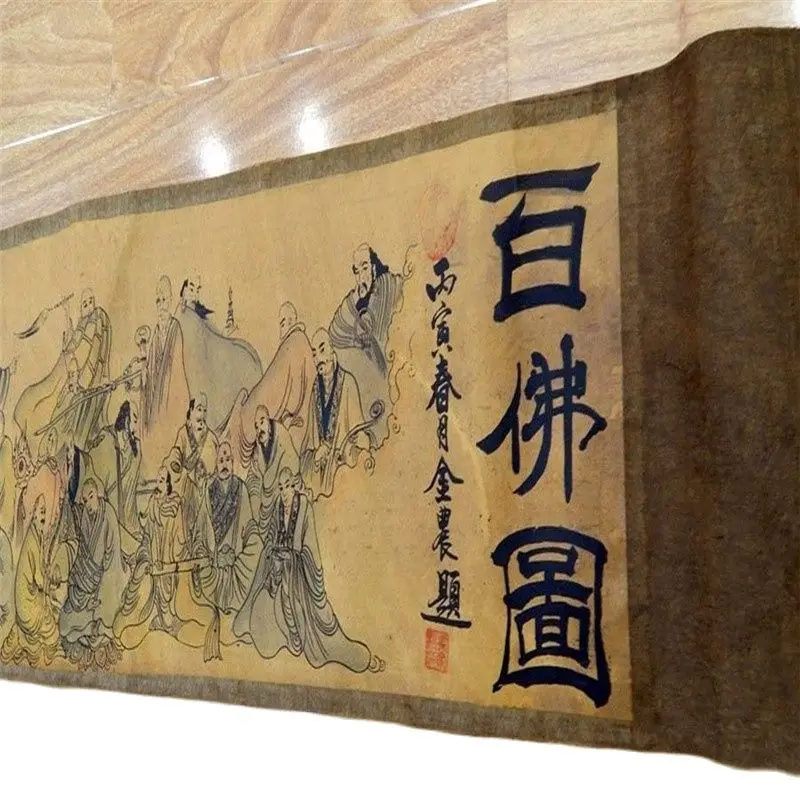 百佛圖
丙寅春月金農題